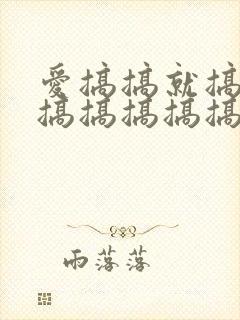 愛搞搞就搞
搞搞搞搞搞
雨落落